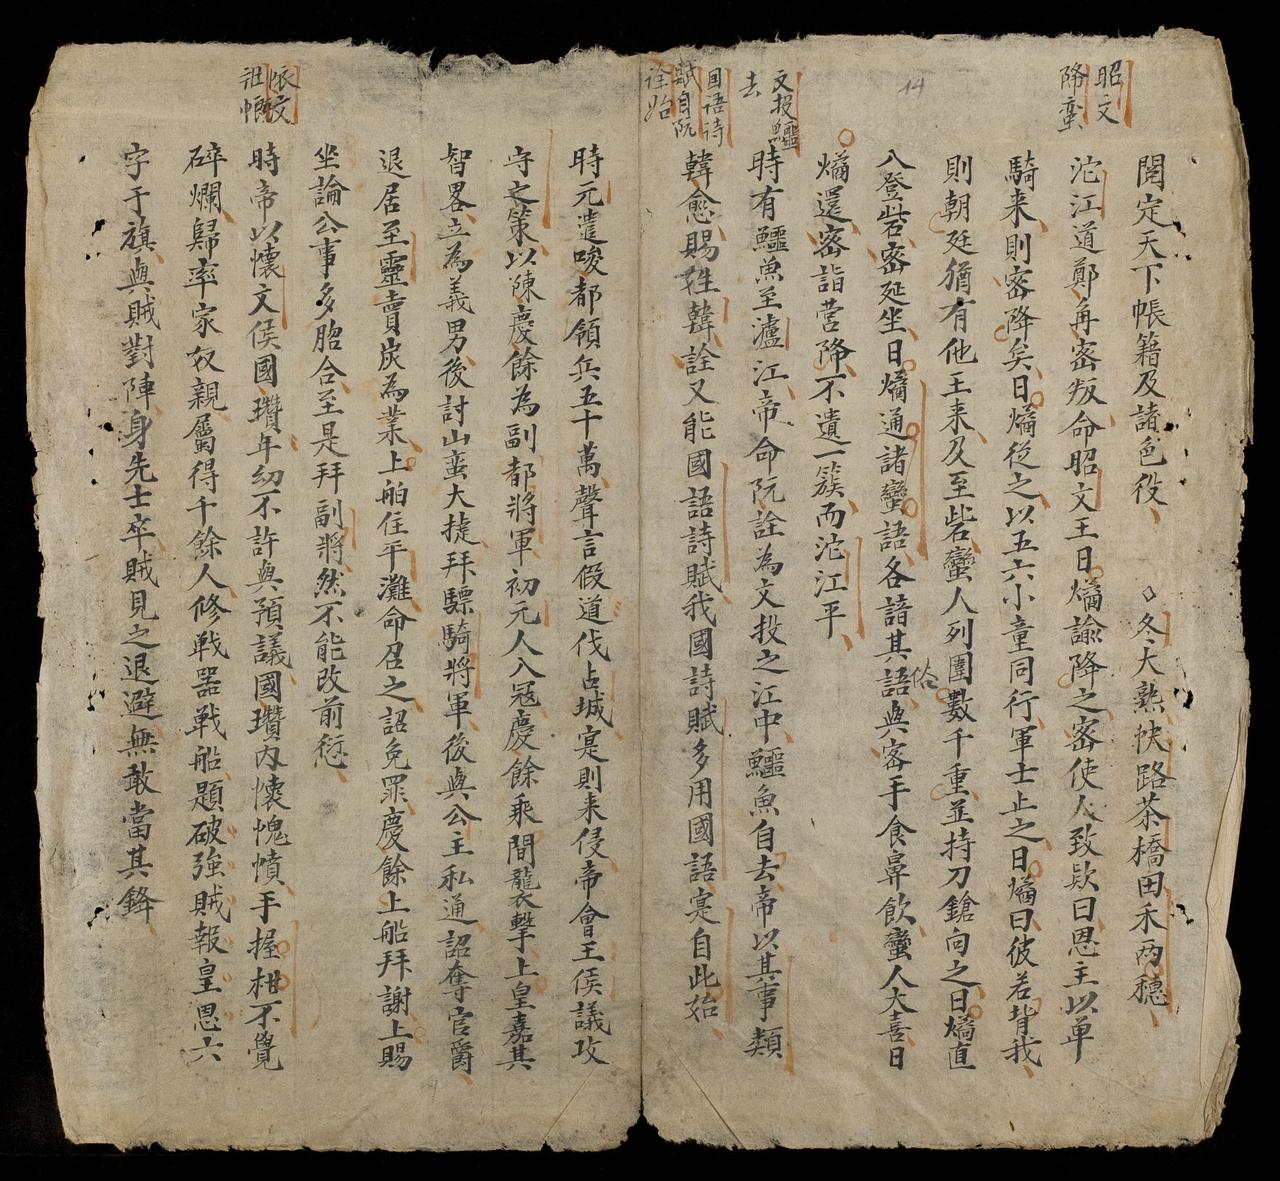 昭文
降蠻
閱定天下帳籍及諸色役 冬大熟快路茶橋田禾兩穗
沱江道鄭角密叛命昭文王日燏諭降之密使人致欵曰恩主以单
騎来則密降矣日燏從之以五六小童同行軍士止之日燏曰彼若背我
則朝廷猶有他王来及至砦蠻人列圍數千重並持刀鎗向之日燏直
八登砦密延坐日燏通諸蠻語各諳其語俗與密手食鼻飲蠻人大喜日
燏還密詣营降不遺一簇而沱江平
文投鱷
去
時有鱷魚至瀘江帝命阮詮為文投之江中鱷魚自去帝以其事類
国语诗
賦自阮
詮始
韓愈賜姓韓詮又能國語詩賦我國詩賦多用國語寔自此始
時元遣唆都領兵五十萬聲言假道伐占城寔則来侵帝會王侯議攻
守之策以陳慶餘為副都將軍初元人入冦慶餘乘間襲擊上皇嘉其
智畧立為義男後討山蛮大捷拜驃騎將軍後與公主私通詔奪官爵
退居至靈賣炭為業上舶住平灘命召之詔免罪慶餘上船拜謝上賜
坐論公事多脗合至是拜副將然不能改前愆
懷文
時帝以懷文侯國瓚年幼不許與預議國瓚内懷愧憤手握柑不覺
碎爛歸率家奴親屬得千餘人修戰器戰船題破強賊報皇恩六
字于旗與賊對陣身先士卒賊見之退避無敢當其鋒